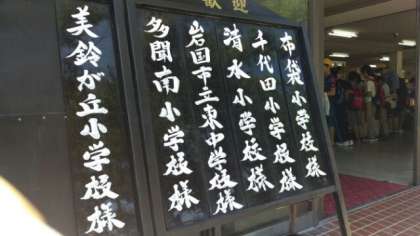 歓迎
布袋小学校様
千代田小学校様
清水小学校様
岩国市立東中学校様
多聞南小学校様
美鈴が丘小学校様